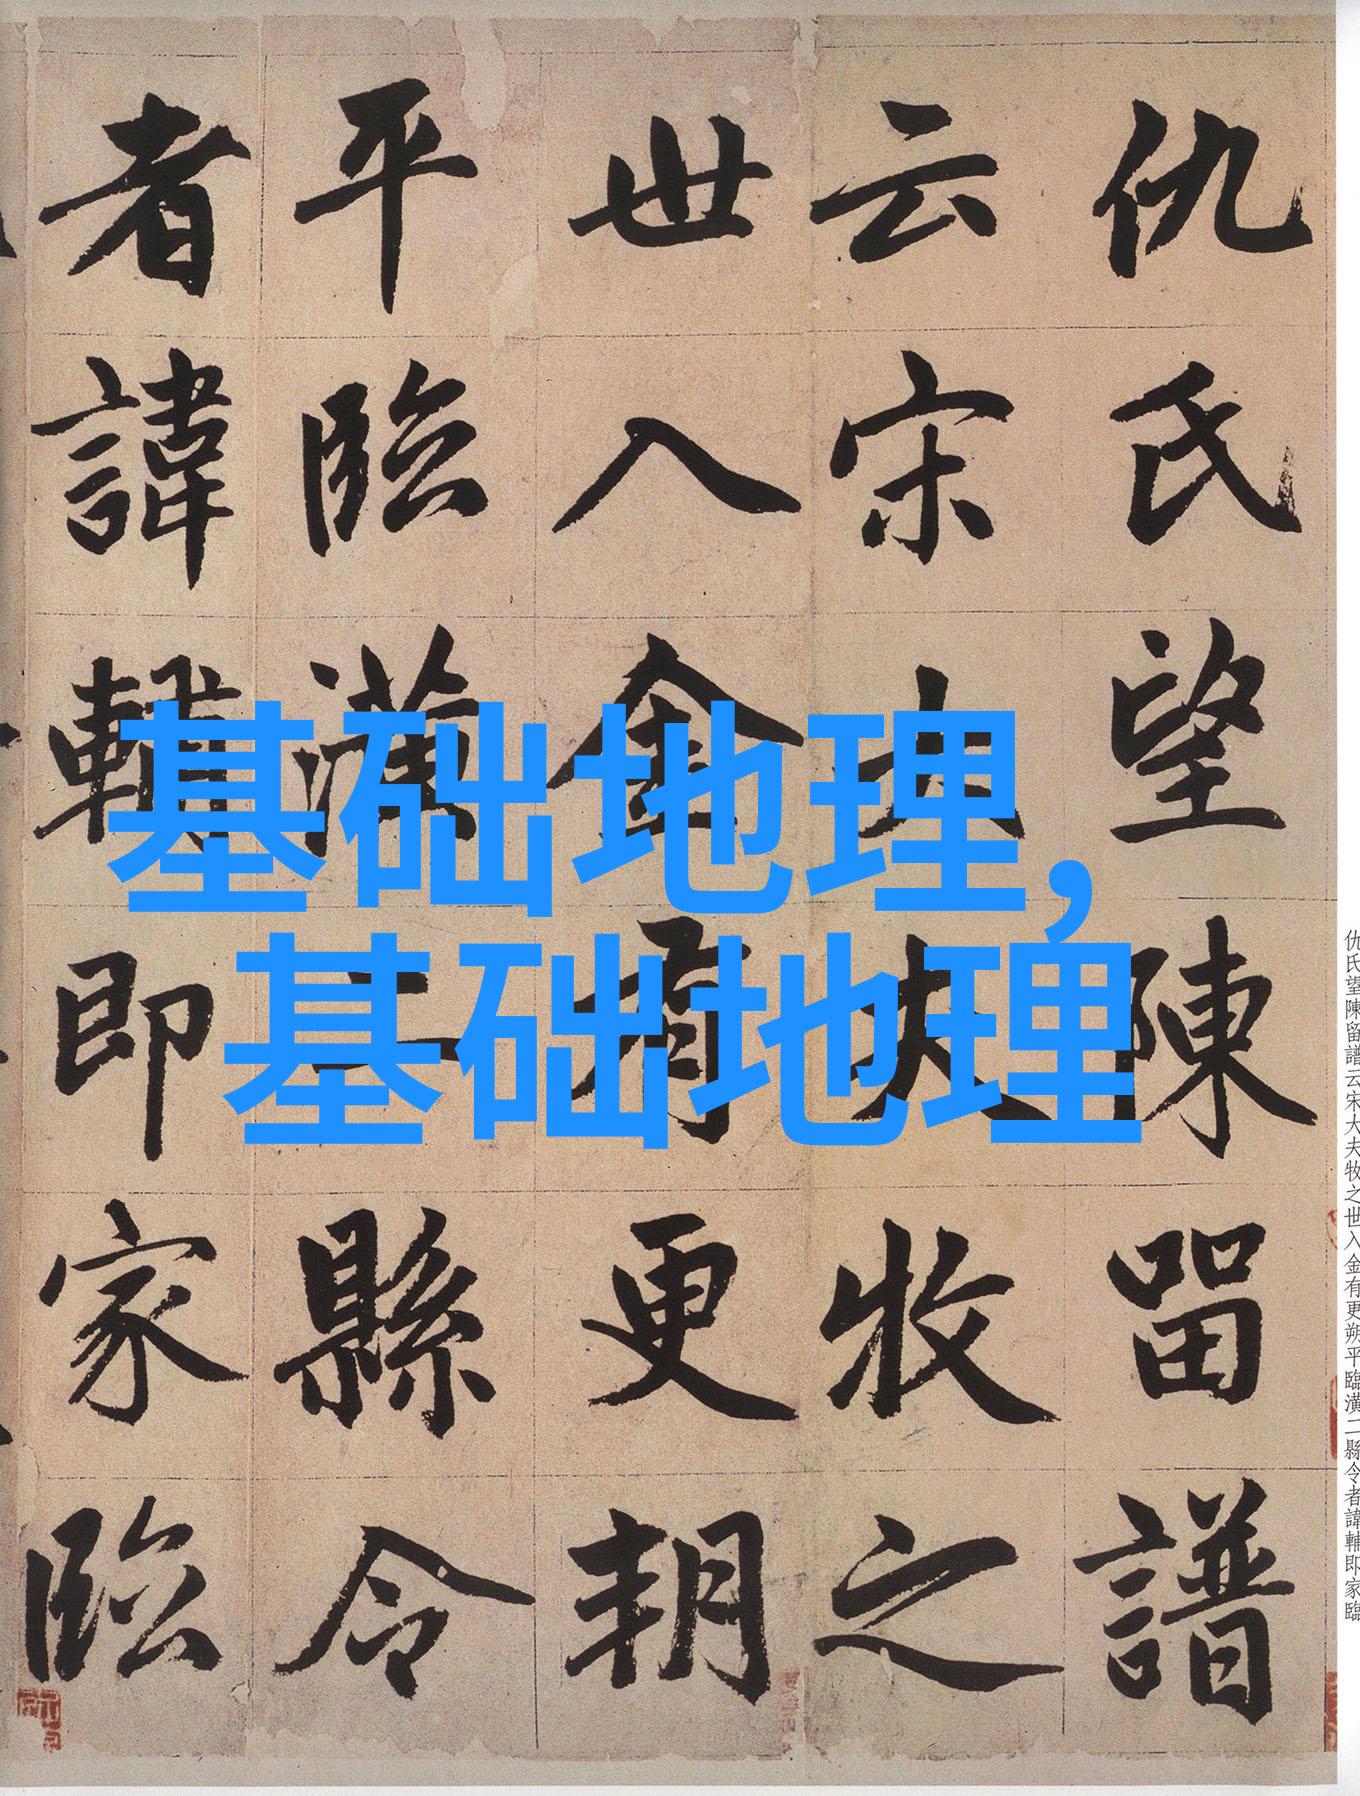 仇氏望陳留譜
云宋大夫牧之
世入金有更朔
平臨潢二縣令
者諱輔即家臨
基础地理,
基础地理
仇氏望陳留譜云宋大夫牧之世入金有更朔平臨潢二縣令者諱輔即家臨